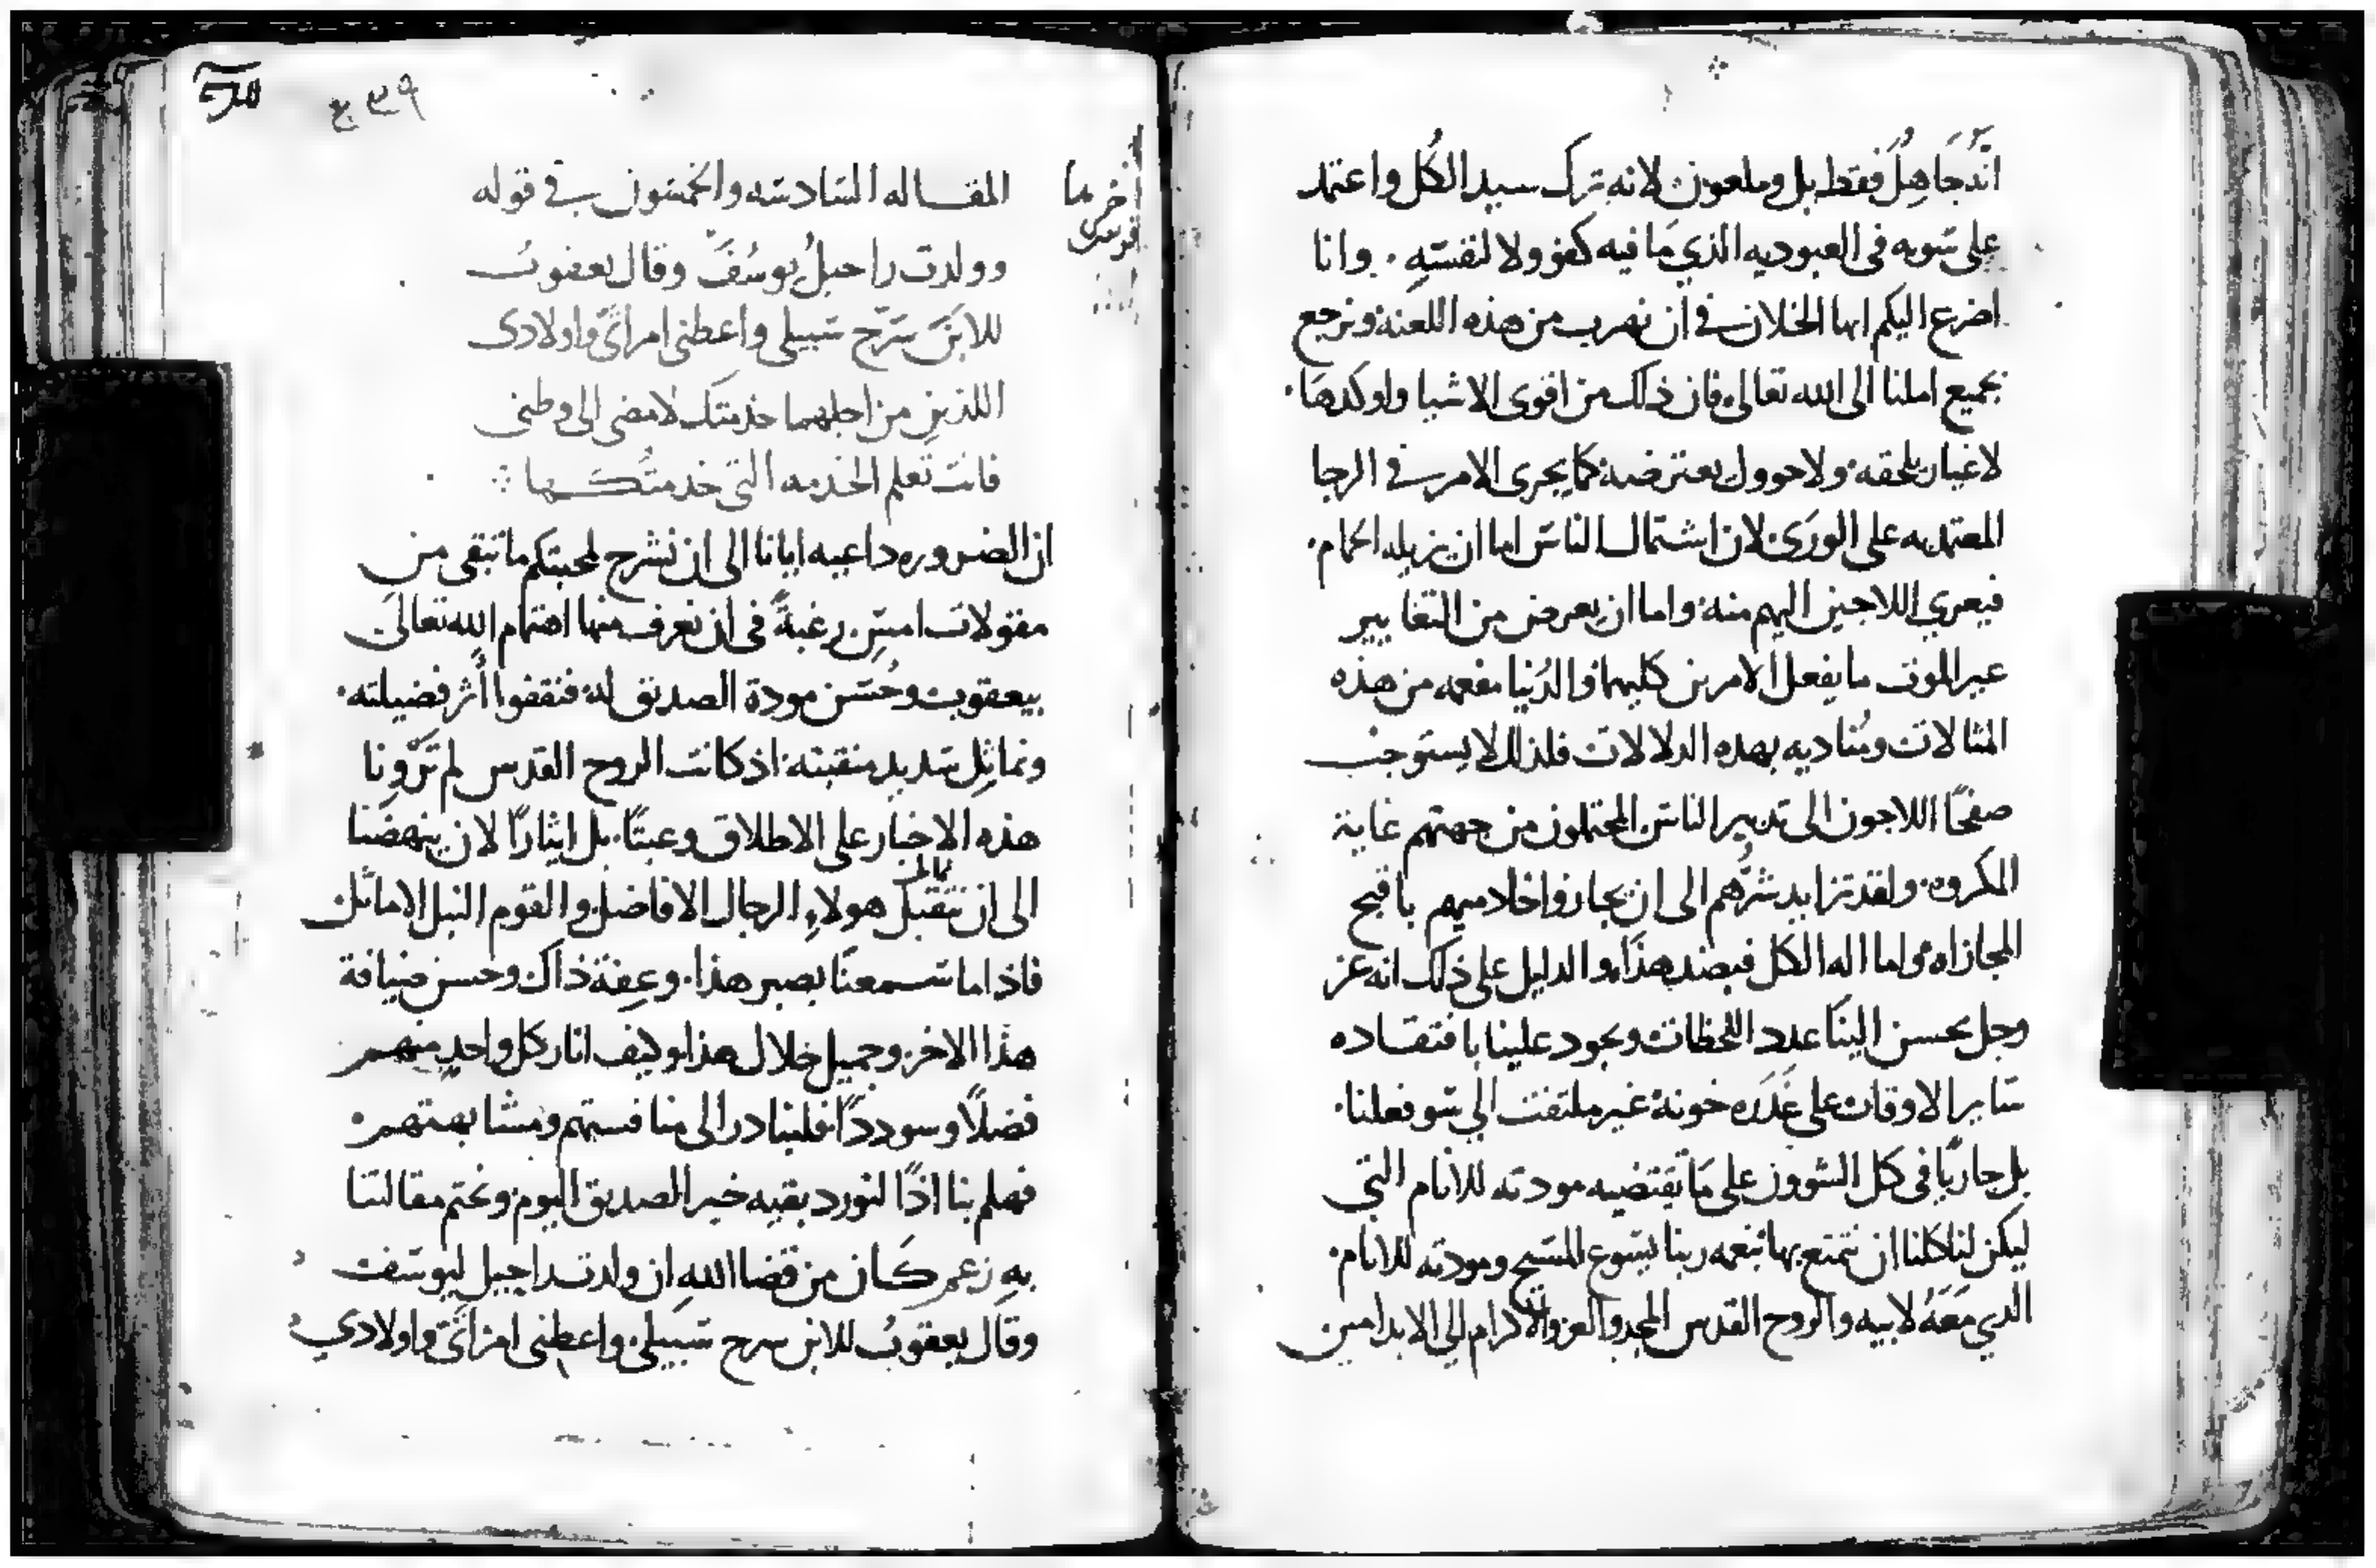 انه جاهل فقط بل وملعون لانه ترك سيد الكل واعتمد
على سويه في العبوديه الذي ما فيه كفو ولا لنفسه . وانا
اضرع اليكم ايها الخلان في ان نهرب من هذه اللعنه ونرجع
بجميع املنا الى الله تعالى فان ذلك من اقوى الاشيا واوكدها
لا غيار يلحقه ولا حوول يعترضه كما يجرى الامر في الرجا
المعتمد به على الورى لان اشتمال الناس اما ان يزيله الحمام
فيعري اللاجين اليهم منه واما ان يعرض من التغايير
غير الموت ما يفعل الامرين كليهما والدنيا مفعمه من هذه
المثالات ومناديه بهذه الدلالات فلذلك لا يستوجب
صفحًا اللاجون الى تدبير الناس المحتملون من جهتهم غاية
المكروه ولقد تزايد شرُّهم الى ان يجازوا خادميهم باقبح
المجازاه واما اله الكل فبضد هذا والدليل على ذلك انه عز
وجل يحسن الينا عدد اللحظات ويجود علينا بافتقاده
ساير الاوقات على غدره خونة غير ملتفت الي سو فعلنا
بل جاريًا في كل الشوون على ما تقتضيه مودته للانام التي
ليكن لنا كلنا ان نتمتع بها بنعمه ربنا يسوع المسيح ومودته للانام
الدي معه لابيه والروح القدس المجد والعز والاكرام الي الابد امين
٣٩ ع
اخر ما
المقاله السادسه والخمسون في قوله
وولدت راحيل يوسف وقال يعقوب
للابن سرّح سبيلي واعطنى امراتيَّ واولادى
اللذين من اجلهما خدمتك لامضى الى وطنى
فانت تعلم الخدمه التي خدمتكها
ان الضروره داعيه ايانا الى ان نشرح لمحبتكم ما تبقى من
مقولات امس رغبةً في ان نعرف منها اهتمام الله تعالى
بيعقوب وحُسن مودة الصديق له فنقفوا أثر فضيلته
ونماثل سديد منقبته اذ كانت الروح القدس لم تروِنا
هذه الاخبار على الاطلاق وعبثًا بل ايثارًا لان ينهضنا
الى ان نتقيل هولاء الرجال الافاضل والقوم النبل الاماثل
فاذا ما سمعنا بصبر هذا وعفة ذاك وحسن ضيافة
هذا الاخر وجميل خلال هذا وكيف انار كل واحدٍ منهم
فضلًا وسوددًا فلنبادر الى منافستهم ومشابهتهم
فهلم بنا اذًا لنورد بقيه خبر الصديق اليوم ونختم مقالتنا
به زعم كان من قضا الله ان ولدت راحيل ليوسف
وقال يعقوبُ للابن سرح سبيلي واعطني امراتيَّ واولادي